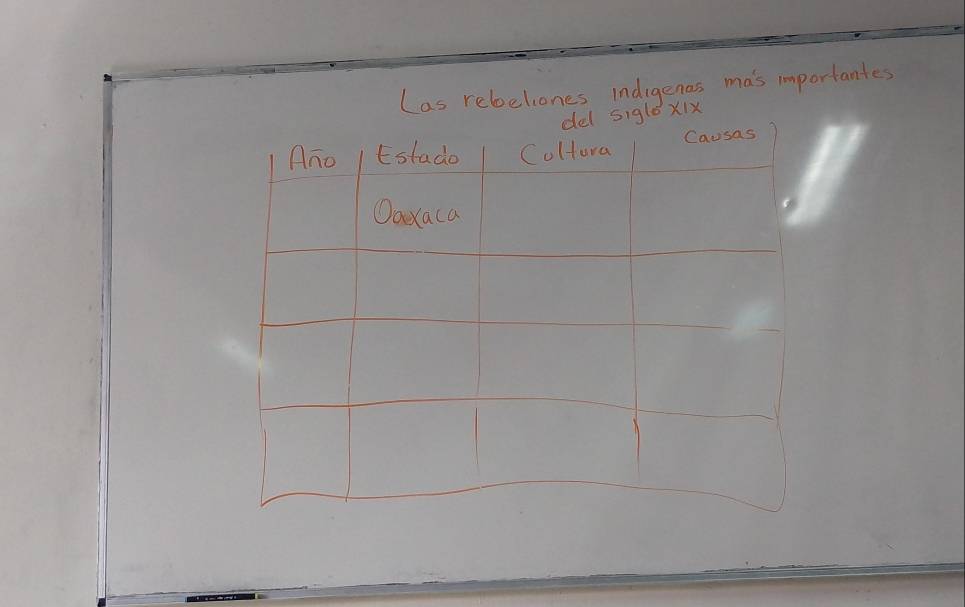 Las rebeliones indígenas más importantes
del siglo XIX
Año Estado Coltura Causas
Oaxaca